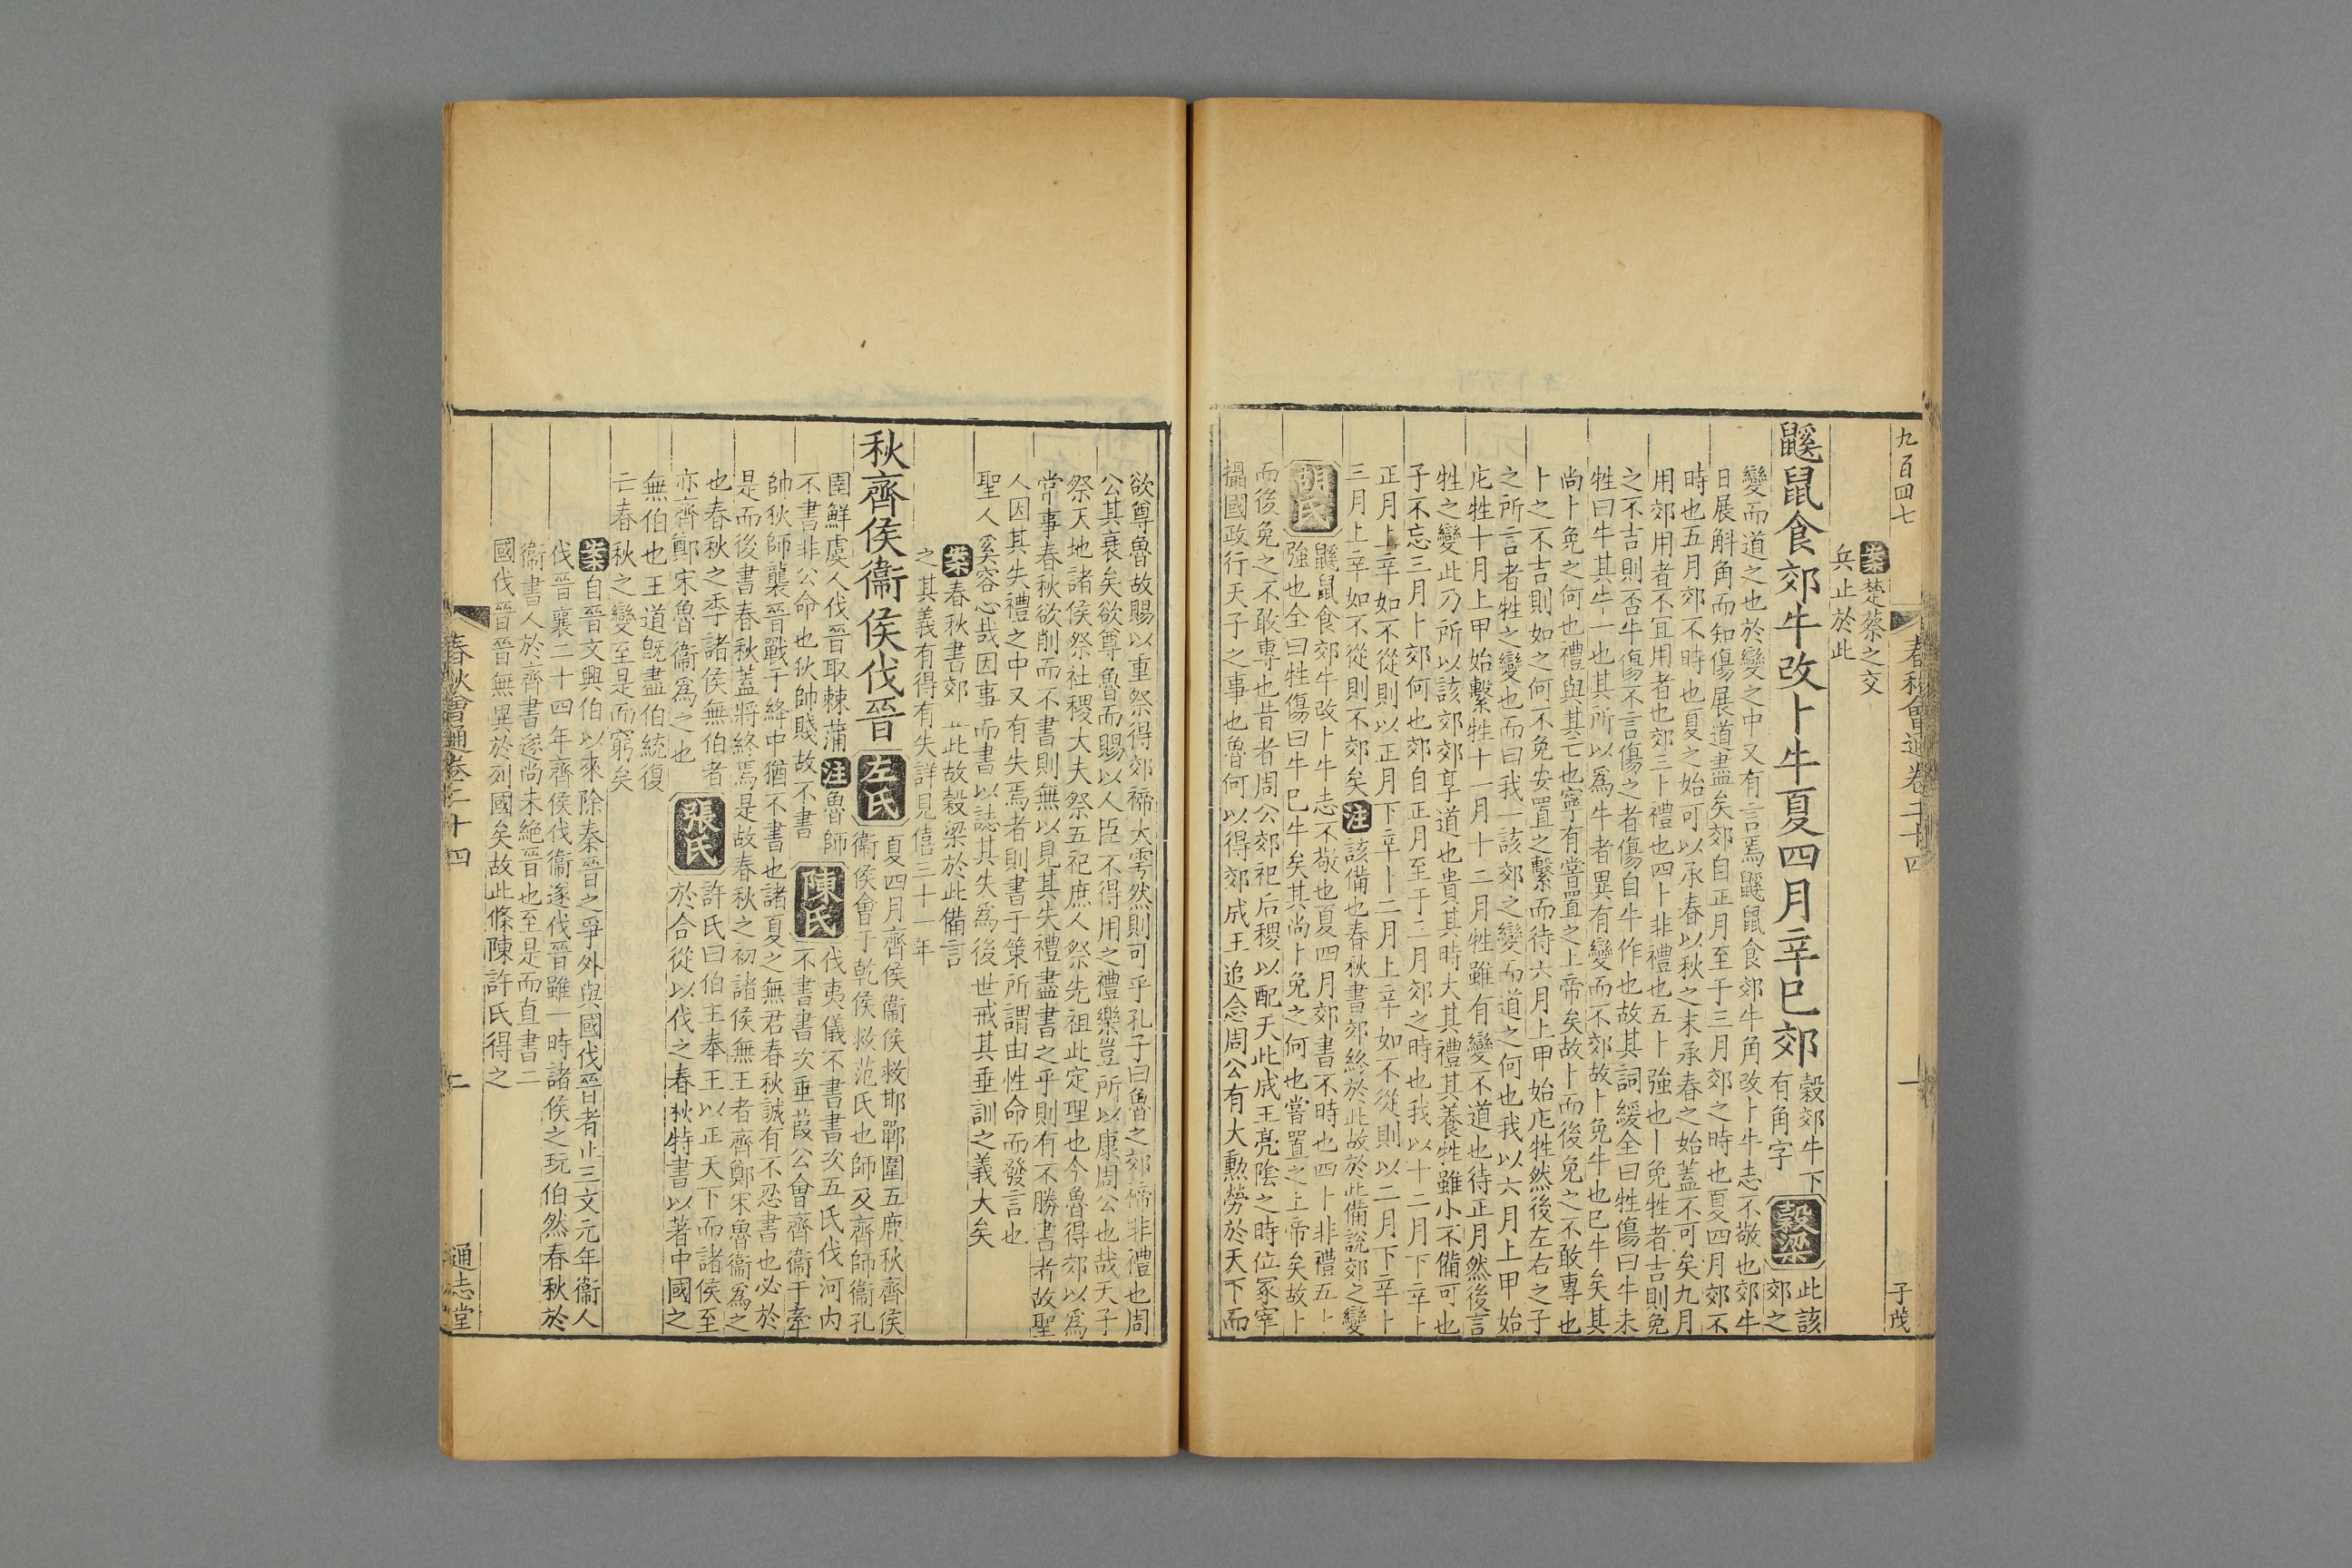 九百四七
春秋會通卷二十四
一
子茂
案楚蔡之交
兵止於此
鼷鼠食郊牛改卜牛夏四月辛巳郊
穀郊牛下
有角字
穀梁
此該
郊之
變而道之也於變之中又有言焉鼷鼠食郊牛角改卜牛志不敬也郊牛
日展斛角而知傷展道盡矣郊自正月至于三月郊之時也夏四月郊不
時也五月郊不時也夏之始可以承春以秋之末承春之始蓋不可矣九月
用郊用者不宜用者也郊三卜禮也四卜非禮也五卜強也卜免牲者吉則免
之不吉則否牛傷不言傷之者傷自牛作也故其詞緩全曰牲傷曰牛未
牲曰牛其牛一也其所以爲牛者異有變而不郊故卜免牛也已牛矣其
尚卜免之何也禮與其亡也寧有嘗置之上帝矣故卜而後免之不敢專也
卜之不吉則如之何不免安置之繫而待六月上甲始庀牲然後左右之子
之所言者牲之變也而曰我一該郊之變而道之何也我以六月上甲始
庀牲十月上甲始繫牲十一月十二月牲雖有變不道也待正月然後言
牲之變此乃所以該郊郊享道也貴其時大其禮其養牲雖小不備可也
子不忘三月卜郊何也郊自正月至于三月郊之時也我以十二月下辛卜
正月上辛如不從則以正月下辛卜二月上辛如不從則以二月下辛卜
三月上辛如不從則不郊矣注該備也春秋書郊終於此故於此備說郊之變
胡氏
鼷鼠食郊牛改卜牛志不敬也夏四月郊書不時也四卜非禮五卜
強也全曰牲傷曰牛已牛矣其尚卜免之何也嘗置之上帝矣故卜
而後免之不敢專也昔者周公郊祀后稷以配天此成王亮陰之時位冢宰
攝國政行天子之事也魯何以得郊成王追念周公有大勳勞於天下而
欲尊魯故賜以重祭得郊禘大雩然則可乎孔子曰魯之郊禘非禮也周
公其衰矣欲尊魯而賜以人臣不得用之禮樂豈所以康周公也哉天子
祭天地諸侯祭社稷大夫祭五祀庶人祭先祖此定理也今魯得郊以爲
常事春秋欲削而不書則無以見其失禮盡書之乎則有不勝書者故聖
人因其失禮之中又有失焉者則書于策所謂由性命而發言也
聖人奚容心哉因事而書以誌其失爲後世戒其垂訓之義大矣
案春秋書郊止此故穀梁於此備言
之其義有得有失詳見僖三十一年
秋齊侯衞侯伐晉
左氏
夏四月齊侯衞侯救邯鄲圍五鹿秋齊侯
衞侯會于乾侯救范氏也師及齊師衞孔
圉鮮虞人伐晉取棘蒲注魯師
不書非公命也狄帥賤故不書
陳氏
伐夷儀不書書次五氏伐河内
不書書次垂葭公會齊衞于牽
帥狄師襲晉戰于絳中猶不書也諸夏之無君春秋誠有不忍書也必於
是而後書春秋蓋將終焉是故春秋之初諸侯無王者齊鄭宋魯衞爲之
也春秋之季諸侯無伯者
亦齊鄭宋魯衞爲之也
張氏
許氏曰伯主奉王以正天下而諸侯至
於合從以伐之春秋特書以著中國之
無伯也王道旣盡伯統復
亡春秋之變至是而窮矣
案自晉文興伯以來除秦晉之爭外與國伐晉者止三文元年衞人
伐晉襄二十四年齊侯伐衞遂伐晉雖一時諸侯之玩伯然春秋於
衞書人於齊書遂尚未絶晉也至是而直書二
國伐晉晉無異於列國矣故此條陳許氏得之
春秋會通卷二十四
二
通志堂